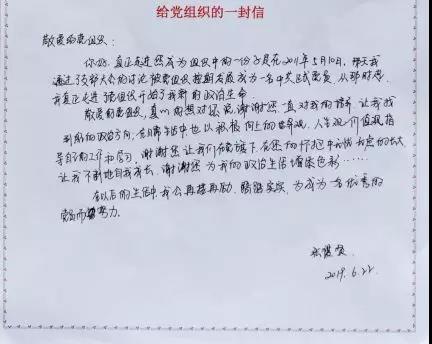 给党组织的一封信
敬爱的党组织：
你好，真正走进您成为组织中的一份子是在2011年5月10日，那天我
通过了支部大会的讨论被党组织按期发展成为一名中共预备党员，从那时起，
我真正走进了党组织开始了我新的政治生命
敬爱的党组织，真心的想对您说谢谢您一直对我的培养，让我找
到我的政治方向，在日常生活中也以积极向上的世界观、人生观、价值观指
导自己的工作和学习，谢谢您让我们在党旗下，在您的怀抱中
让我不断地自我成长，谢谢您为我的政治生活增添色彩……
在以后的生活中，我会再接再励，踏踏实实，为成为一名优秀的
党员而努力。
2019.6.22